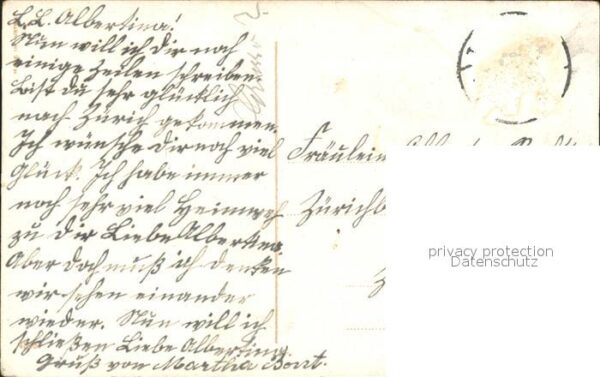 L. L. Albertina!
Nun will ich dir noch
einige Zeilen schreiben.
bist du sehr glücklich
nach Zürich gekommen.
Ich wünsche dir noch viel
Glück. Ich habe immer
noch sehr viel Heimweh
zu dir Liebe Albertina
Aber doch muß ich denken
wir sehen einander
wieder. Nun will ich
schließen Liebe Albertina
Gruß von Martha Bont.
Fräulein
Zürichb
privacy protection
Datenschutz